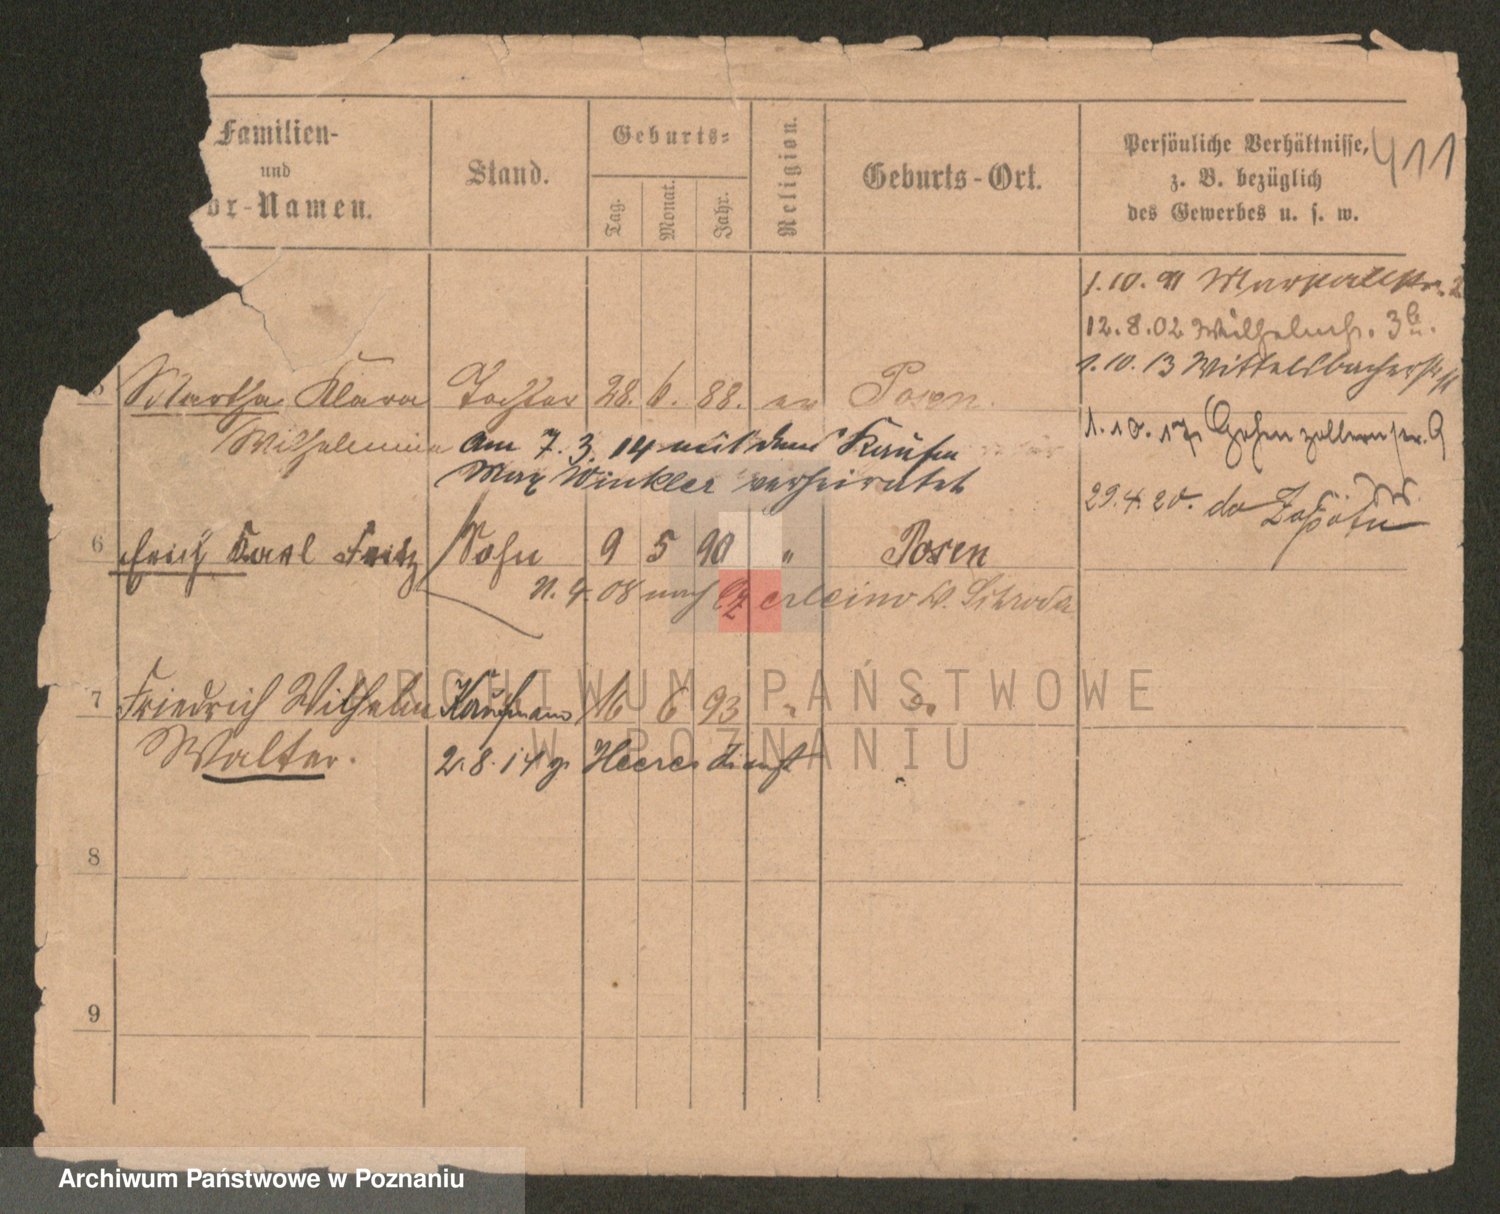 Familien-
und
or-Namen.
Stand.
Geburts=
Tag.
Monat.
Jahr.
Religion.
Geburts-Ort.
Persönliche Verhältnisse,
z. B. bezüglich
des Gewerbes u. s. w.
411
1.10.91
12.8.02 Wilhelmstr. 3
1.10.13 Wittelsbacherstr.
5 Martha Klara Tochter 28. 6. 88. ev Posen.
1.10.17 Hohenzollernstr. 9
Wilhelmine am 7. 3. 14 mit dem Kaufm
Max Winkler verheiratet
29.4.20. do Zoppot
6 Erich Karl Fritz Sohn 9 5 90 " Posen
11.4.08 nach Czerleino Kr. Schroda
7 Friedrich Wilhelm Kaufmann 16 6 93 " do
Walter. 2.8.14 z. Heeresdienst
8
9
ARCHIWUM PAŃSTWOWE
W POZNANIU
Archiwum Państwowe w Poznaniu